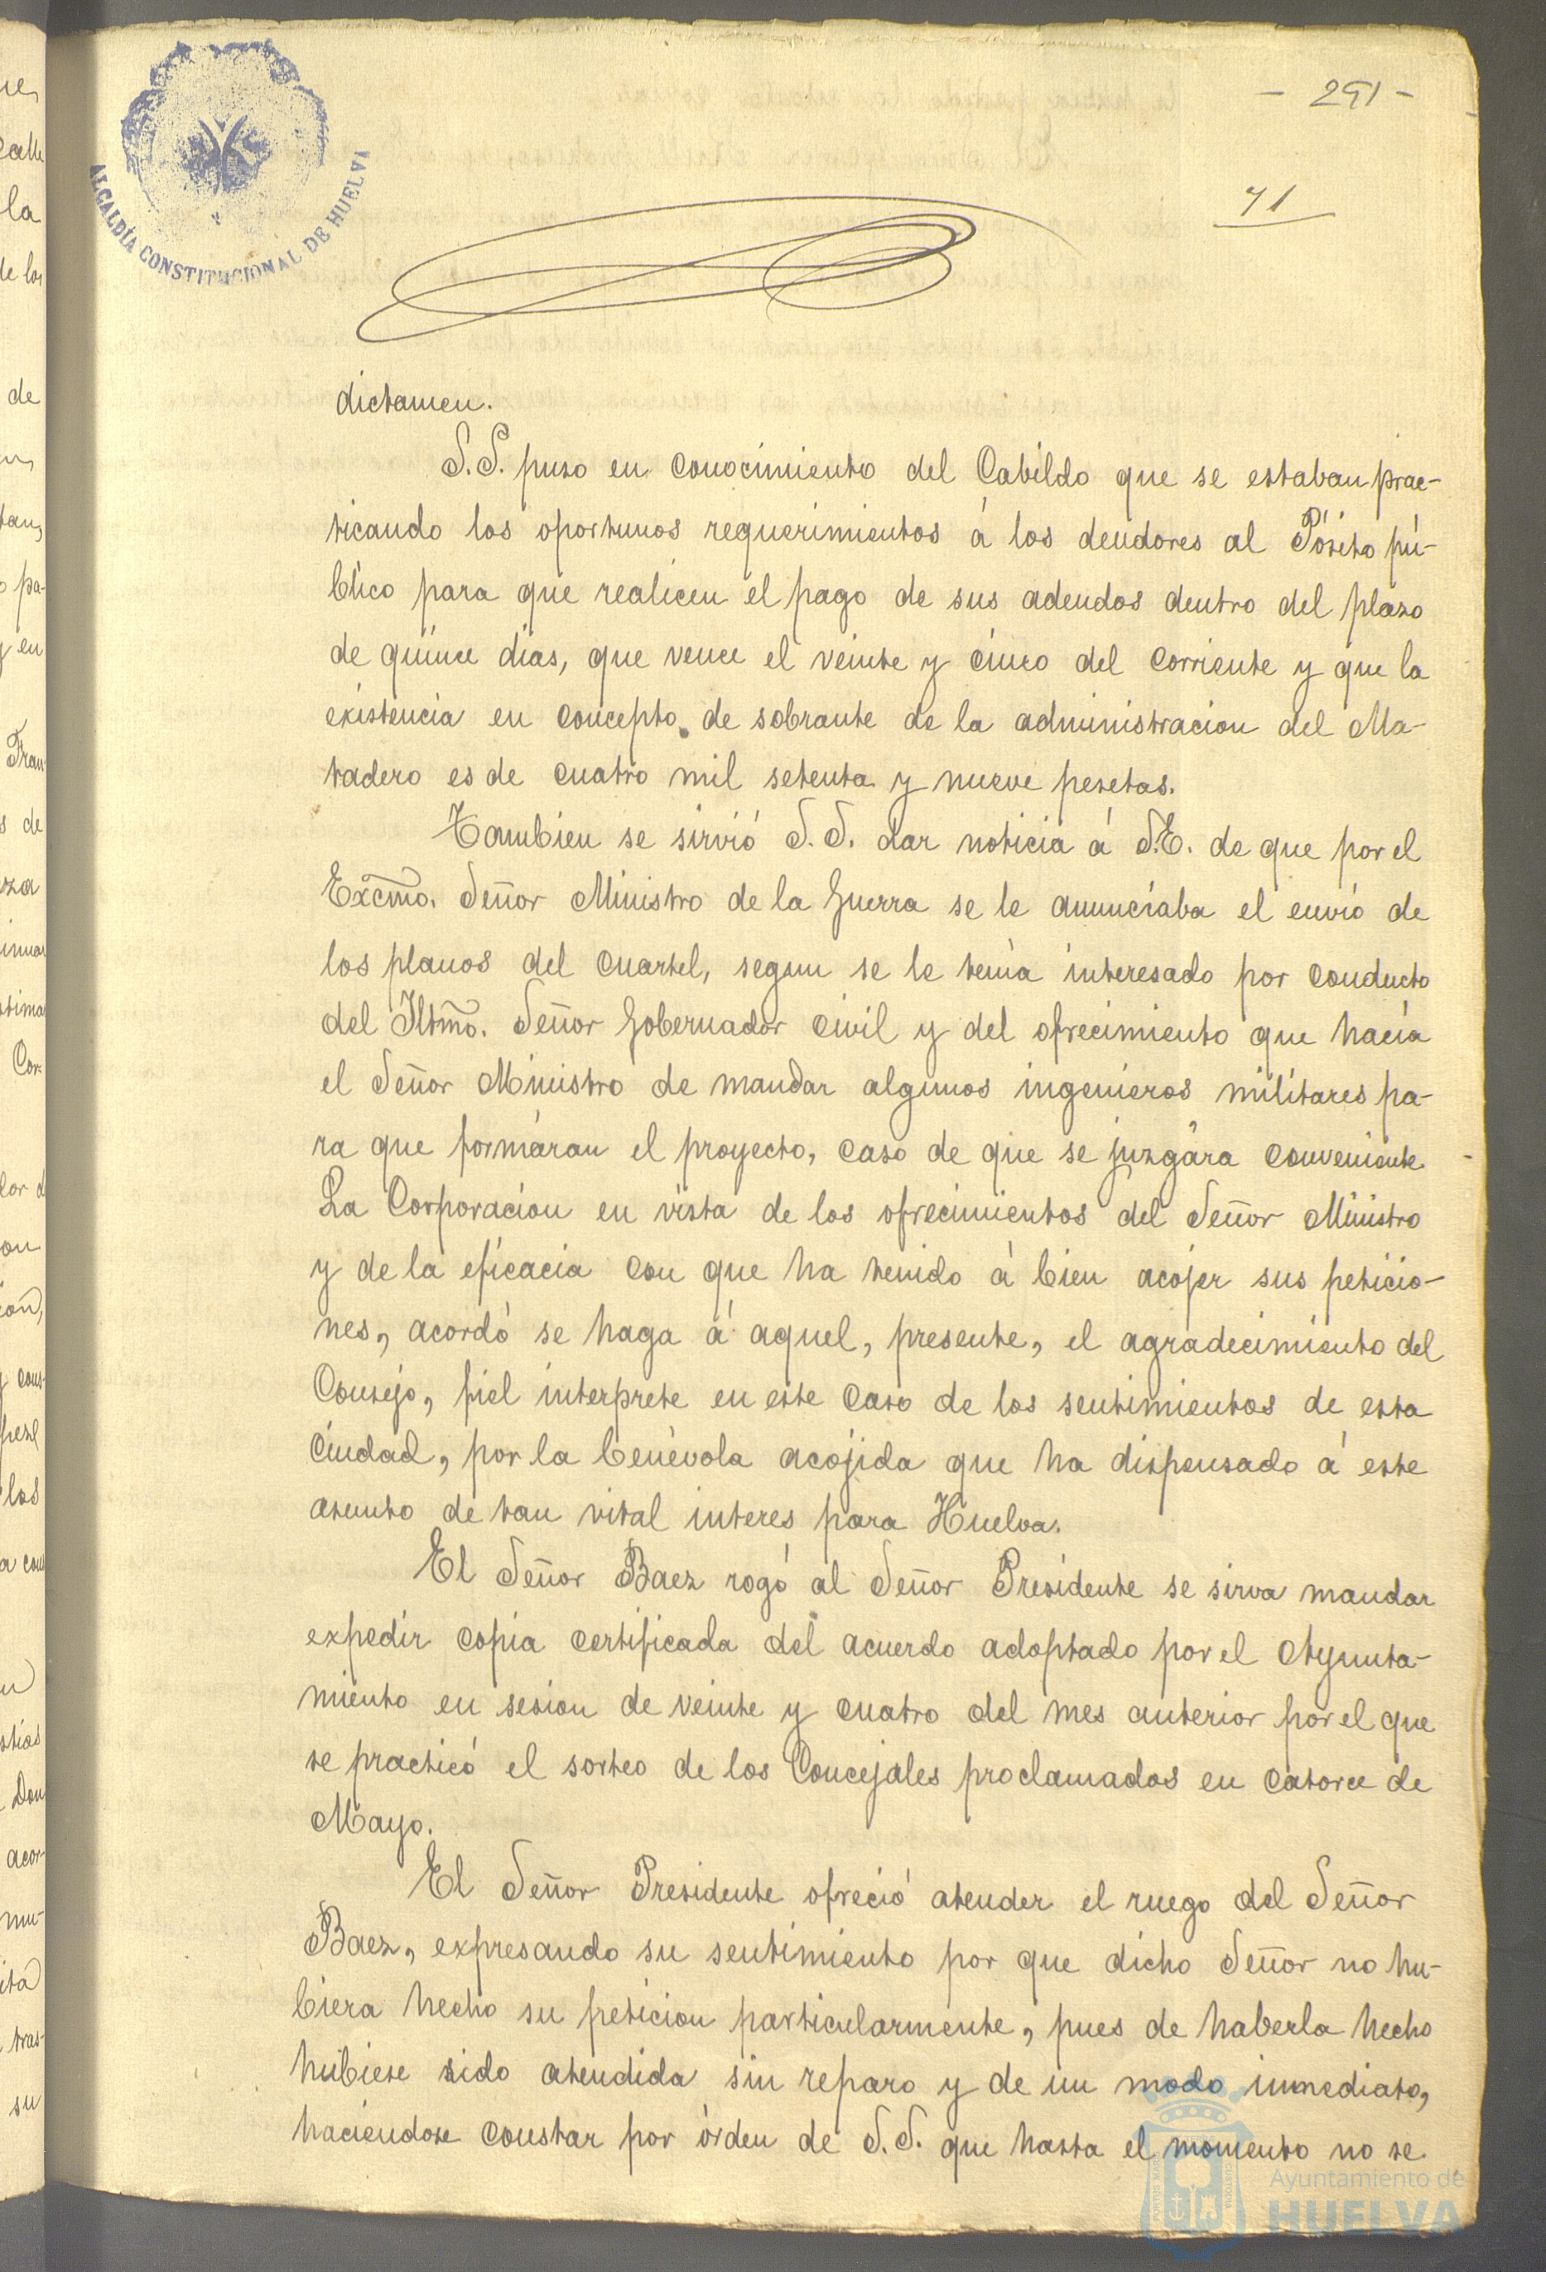 - 291 -
71
ALCALDÍA CONSTITUCIONAL DE HUELVA
dictamen.
S.S. puso en conocimiento del Cabildo que se estaban prac-
ticando los oportunos requerimientos á los deudores al Pósito pú-
blico para que realicen el pago de sus adeudos dentro del plazo
de quince dias, que vence el veinte y cinco del corriente y que la
existencia en concepto de sobrante de la administracion del Ma-
tadero es de cuatro mil setenta y nueve pesetas.
Tambien se sirvió S.S. dar noticia á S.E. de que por el
Excmo. Señor Ministro de la Guerra se le anunciaba el envio de
los planos del cuartel, segun se le tenia interesado por conducto
del Iltmo. Señor Gobernador civil y del ofrecimiento que hacia
el Señor Ministro de mandar algunos ingenieros militares pa-
ra que formáran el proyecto, caso de que se juzgára conveniente.
La Corporacion en vista de los ofrecimientos del Señor Ministro
y de la eficacia con que ha tenido á bien acojer sus peticio-
nes, acordó se haga á aquel, presente, el agradecimiento del
Consejo, fiel interprete en este caso de los sentimientos de esta
ciudad, por la benévola acójida que ha dispensado á este
asunto de tan vital interes para Huelva.
El Señor Baez rogó al Señor Presidente se sirva mandar
expedir copia certificada del acuerdo adoptado por el Ayunta-
miento en sesion de veinte y cuatro del mes anterior por el que
se practicó el sorteo de los Concejales proclamados en catorce de
Mayo.
El Señor Presidente ofreció atender el ruego del Señor
Baez, expresando su sentimiento por que dicho Señor no hu-
biera hecho su peticion particularmente, pues de haberla hecho
hubiese sido atendida sin reparo y de un modo inmediato,
haciéndose constar por órden de S.S. que hasta el momento no se
Ayuntamiento de
HUELVA